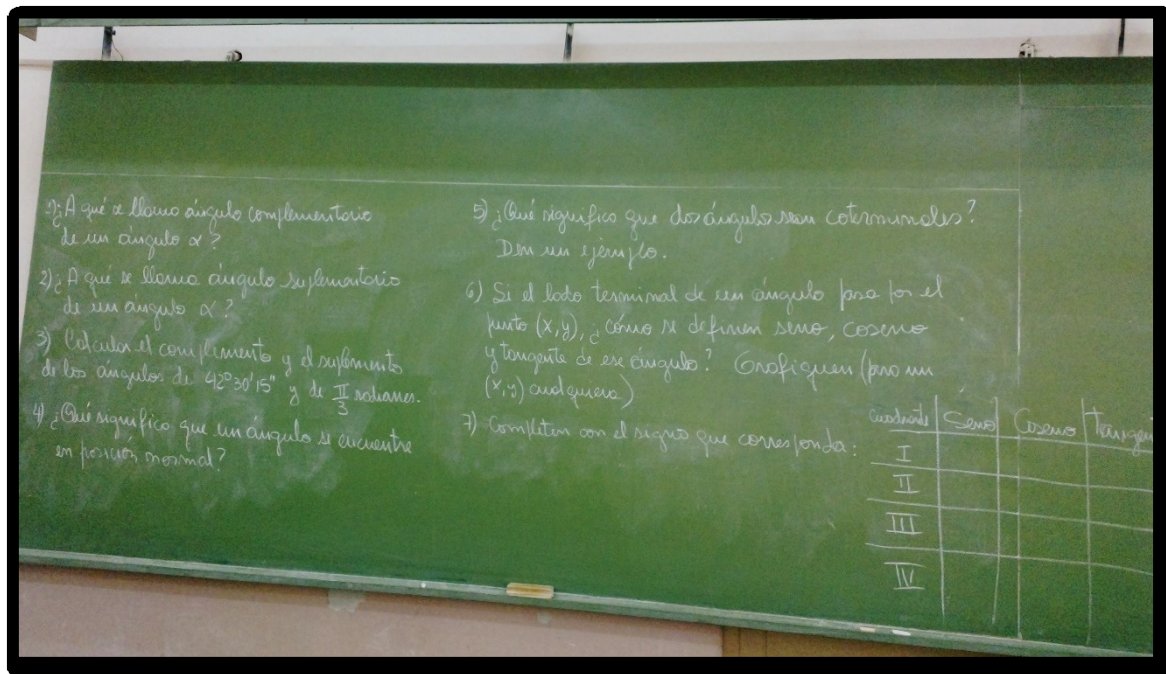 1) ¿A qué se llama ángulo complementario
de un ángulo α?
2) ¿A qué se llama ángulo suplementario
de un ángulo α?
3) Calcular el complemento y el suplemento
de los ángulos de 42°30'15" y de π/3 radianes.
4) ¿Qué significa que un ángulo se encuentre
en posición normal?
5) ¿Qué significa que dos ángulos sean coterminales?
Den un ejemplo.
6) Si el lado terminal de un ángulo pasa por el
punto (x,y), ¿cómo se definen seno, coseno
y tangente de ese ángulo? Grafiquen (para un
(x,y) cualquiera)
7) Completen con el signo que corresponda:
Cuadrante Seno Coseno
I
II
III
IV